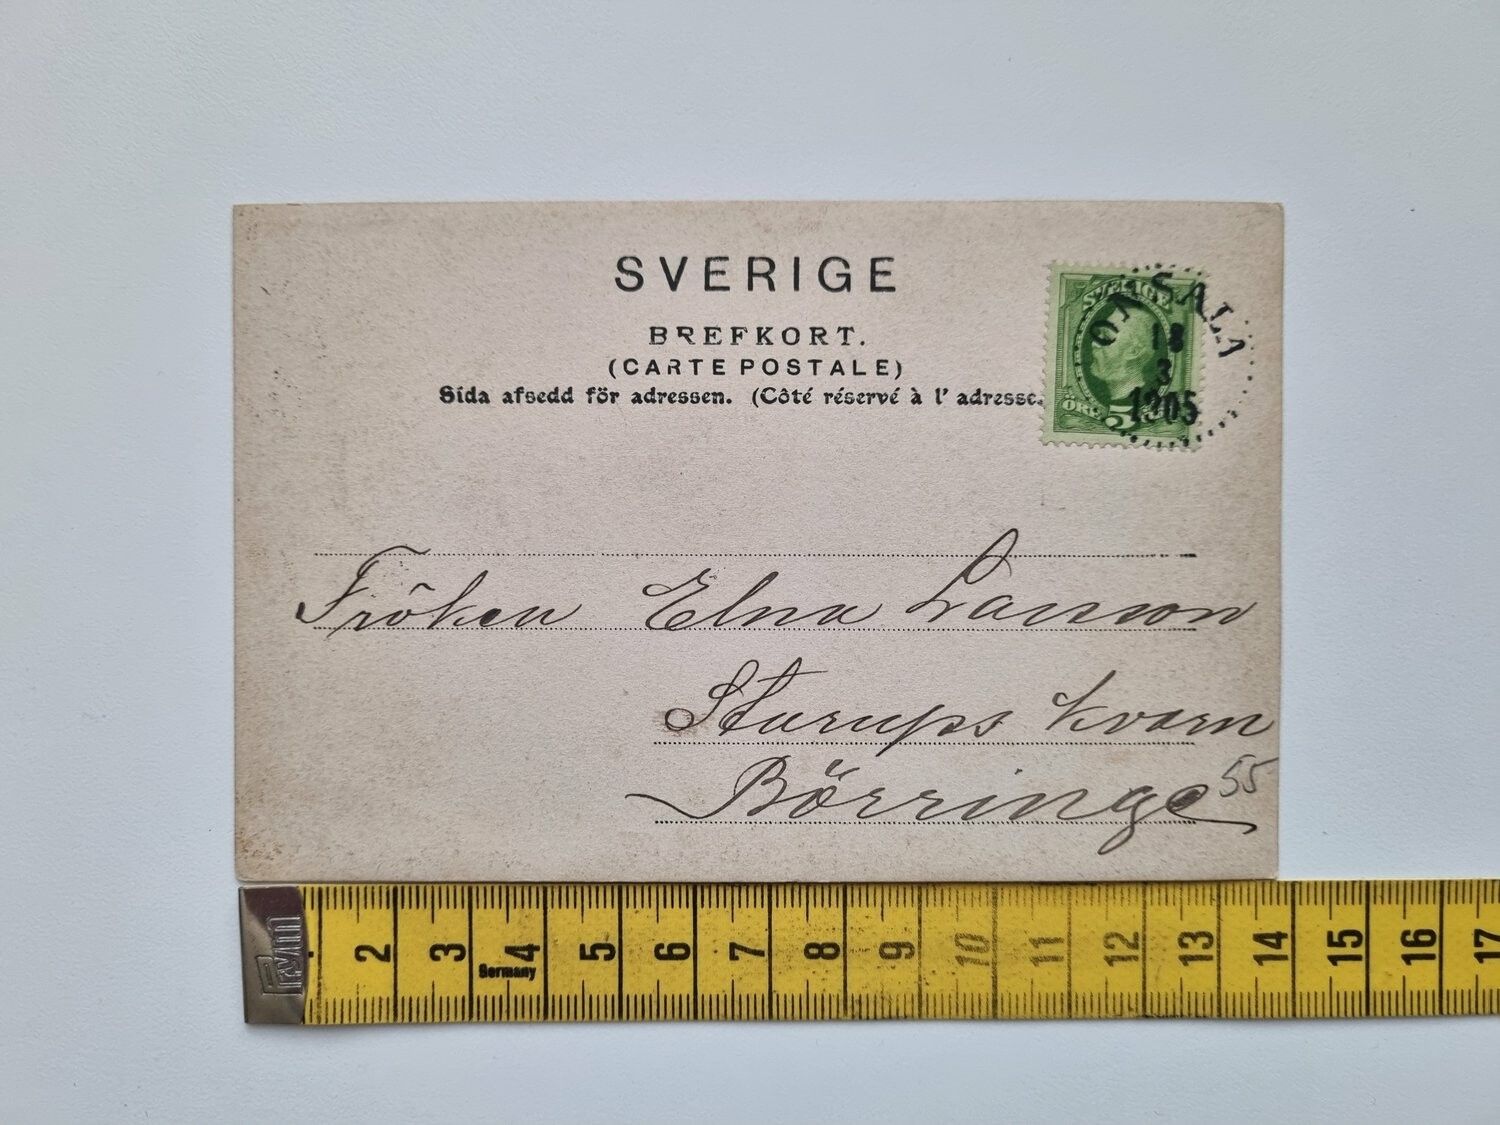 SVERIGE
BREFKORT.
(CARTE POSTALE)
Sida afsedd för adressen. (Côté réservé à l' adresse.
SVERIGE
ÖRE 5
ONSALA
18
3
1905
Fröken Elna Larsson
Sturups kvarn
Börringe
55
Prym
1 2 3 4 5 6 7 8 9 10 11 12 13 14 15 16 17
Germany